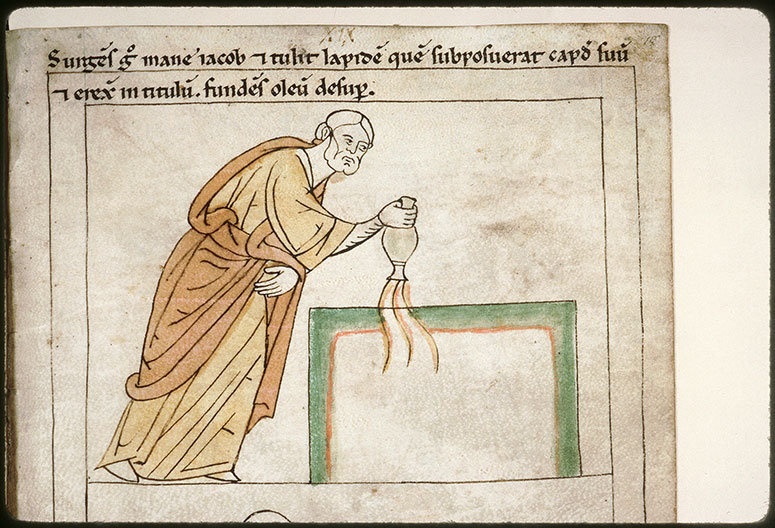 Surgēs g̊ mane iacob ⁊ tulit lapidē quē subposuerat capd̄ suū
⁊ erex̄ in titulū. fundēs oleū desuꝑ.